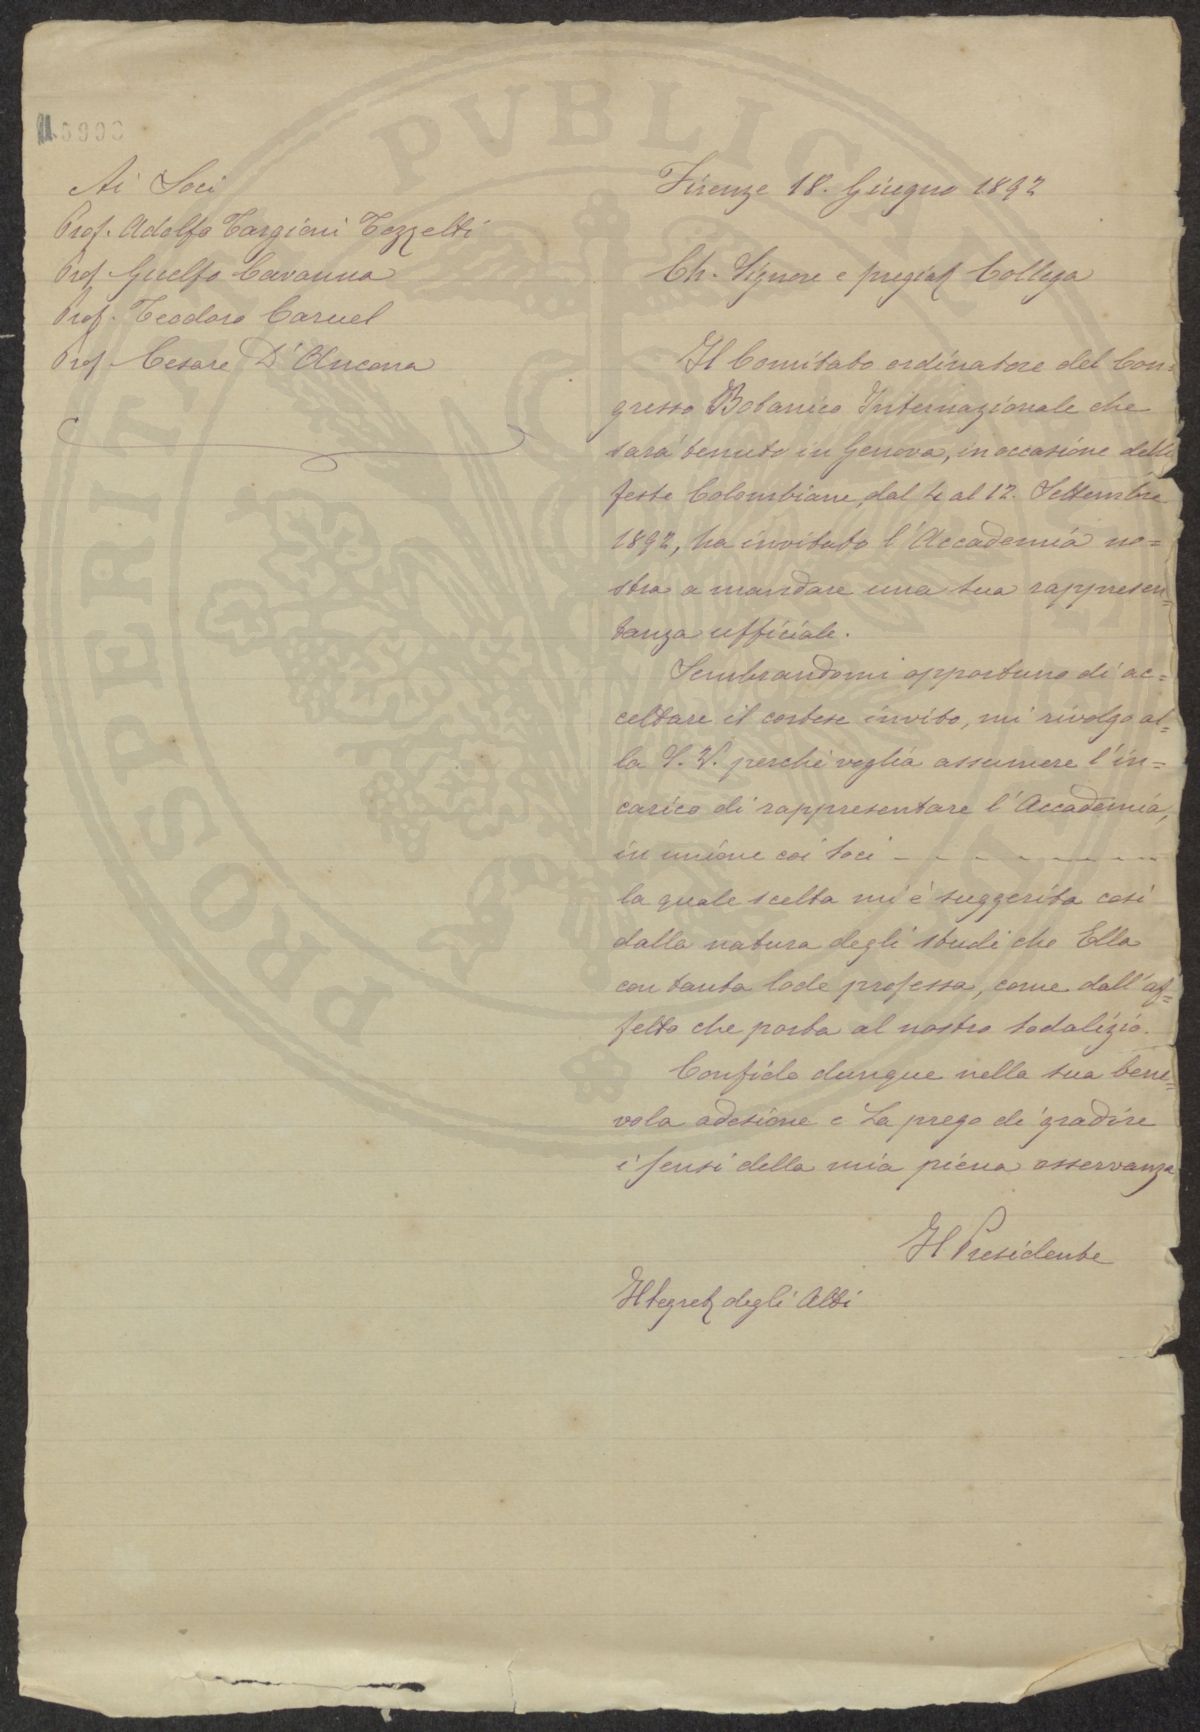 Ai Soci
Prof. Adolfo Targioni Tozzetti
Prof. Guelfo Cavanna
Prof. Teodoro Caruel
Prof. Cesare D'Ancona
Firenze 18. Giugno 1892
Ch. Signore e pregiat Collega
Il Comitato ordinatore del Con=
gresso Botanico Internazionale che
sarà tenuto in Genova, in occasione delle
feste Colombiane, dal 4 al 12. Settembre
1892, ha invitato l'Accademia no=
stra a mandare una sua rappresen=
tanza ufficiale.
Sembrandomi opportuno di ac=
cettare il cortese invito, mi rivolgo al=
la S. V. perchè voglia assumere l'in=
carico di rappresentare l'Accademia,
in unione coi soci - - - - - - - - -
la quale scelta mi è suggerita così
dalla natura degli studi che Ella
con tanta lode professa, come dall'af=
fetto che porta al nostro sodalizio.
Confido dunque nella sua bene=
vola adesione e La prego di gradire
i sensi della mia piena osservanza
Il Presidente
Il Segret degli Atti
PROSPERITATI PUBLICAE